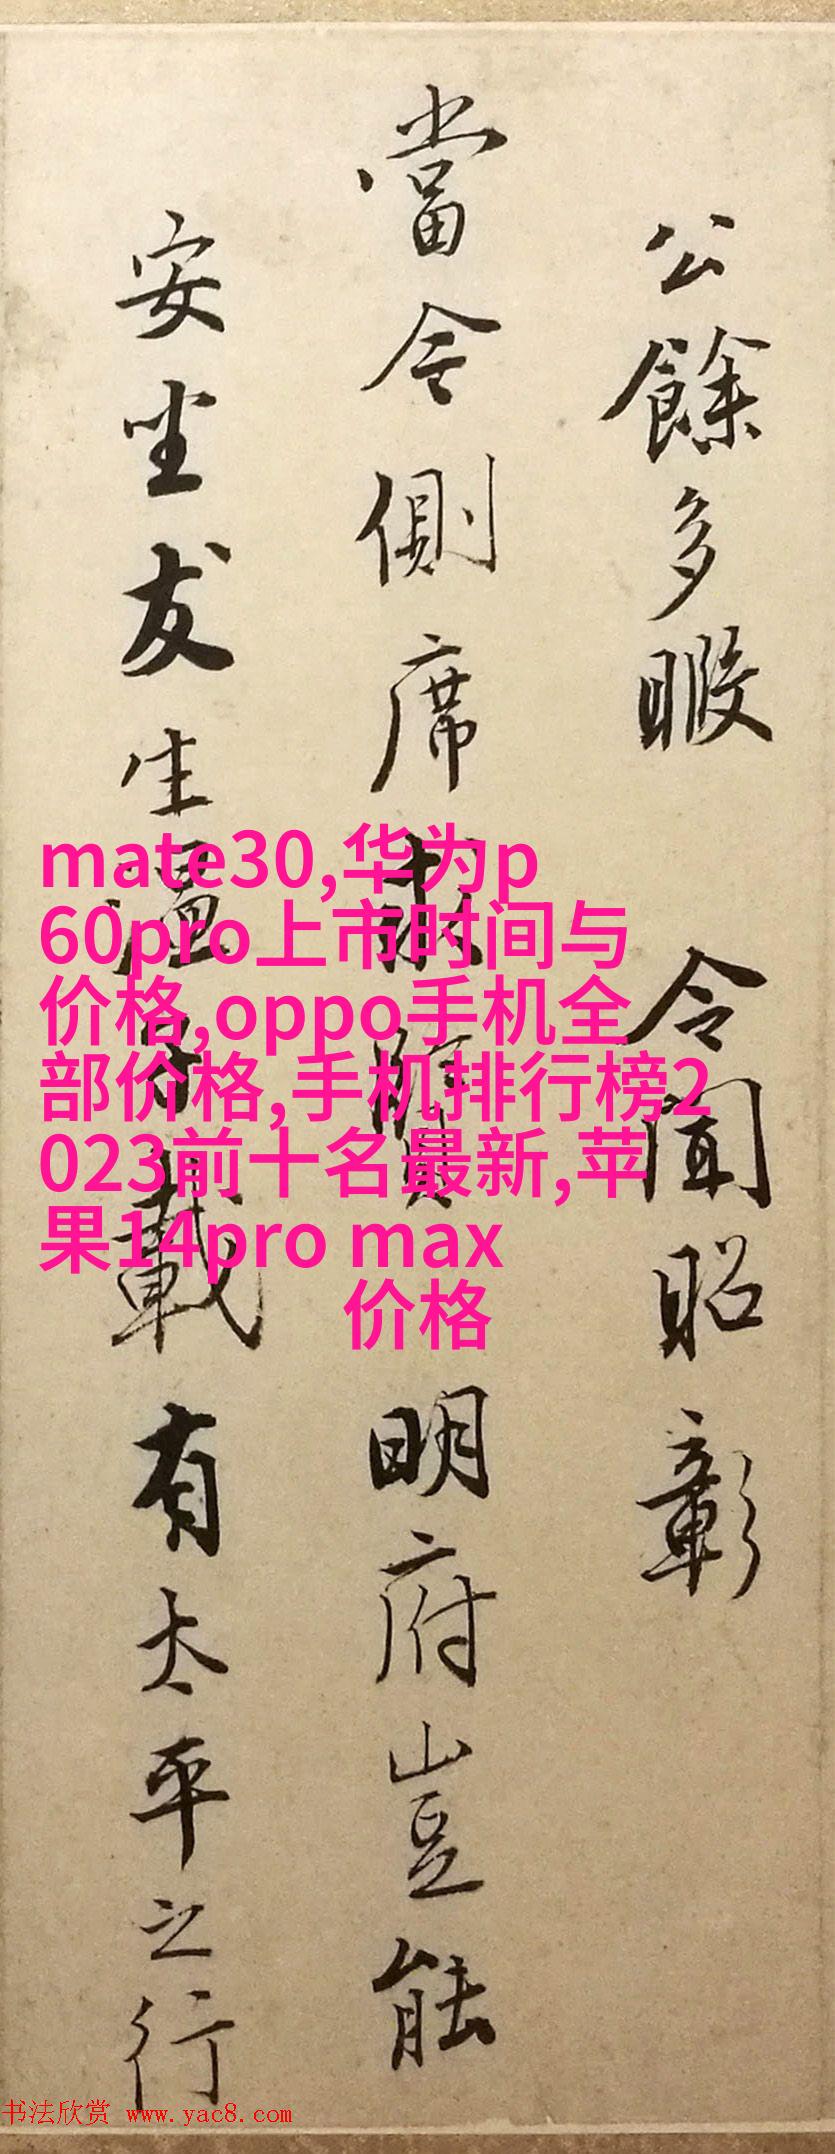 公餘多暇 令聞昭彰
當今側席求賢明府豈能
安坐友生溫載有太平之行
mate30,华为p
60pro上市时间与
价格,oppo手机全
部价格,手机排行榜2
023前十名最新,苹
果14pro max
价格
书法欣赏 www.yac8.com